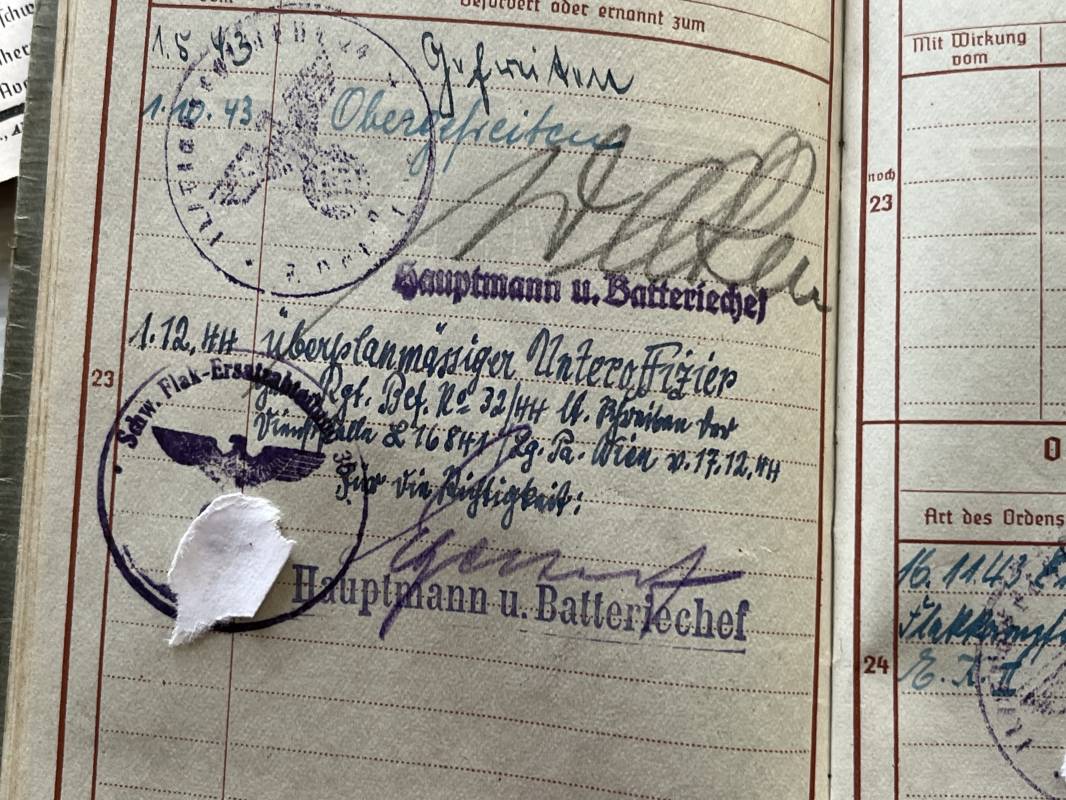 Befördert oder ernannt zum
1.5.43 Gefreiten
1.10.43 Obergefreiten
Hauptmann u. Batteriechef
23
1.12.44 überplanmässiger Unteroffizier
Rgt. Bef. No 32/44 lt. Schreiben der
Dienststelle L 16841 Lg. Pa. Wien v. 17.12.44
Für die Richtigkeit:
Schw. Flak-Ersatzabteilung
Hauptmann u. Batteriechef
Mit Wirkung
vom
noch
23
O
Art des Ordens
16.11.43
Flakkampf
24
E.K. II